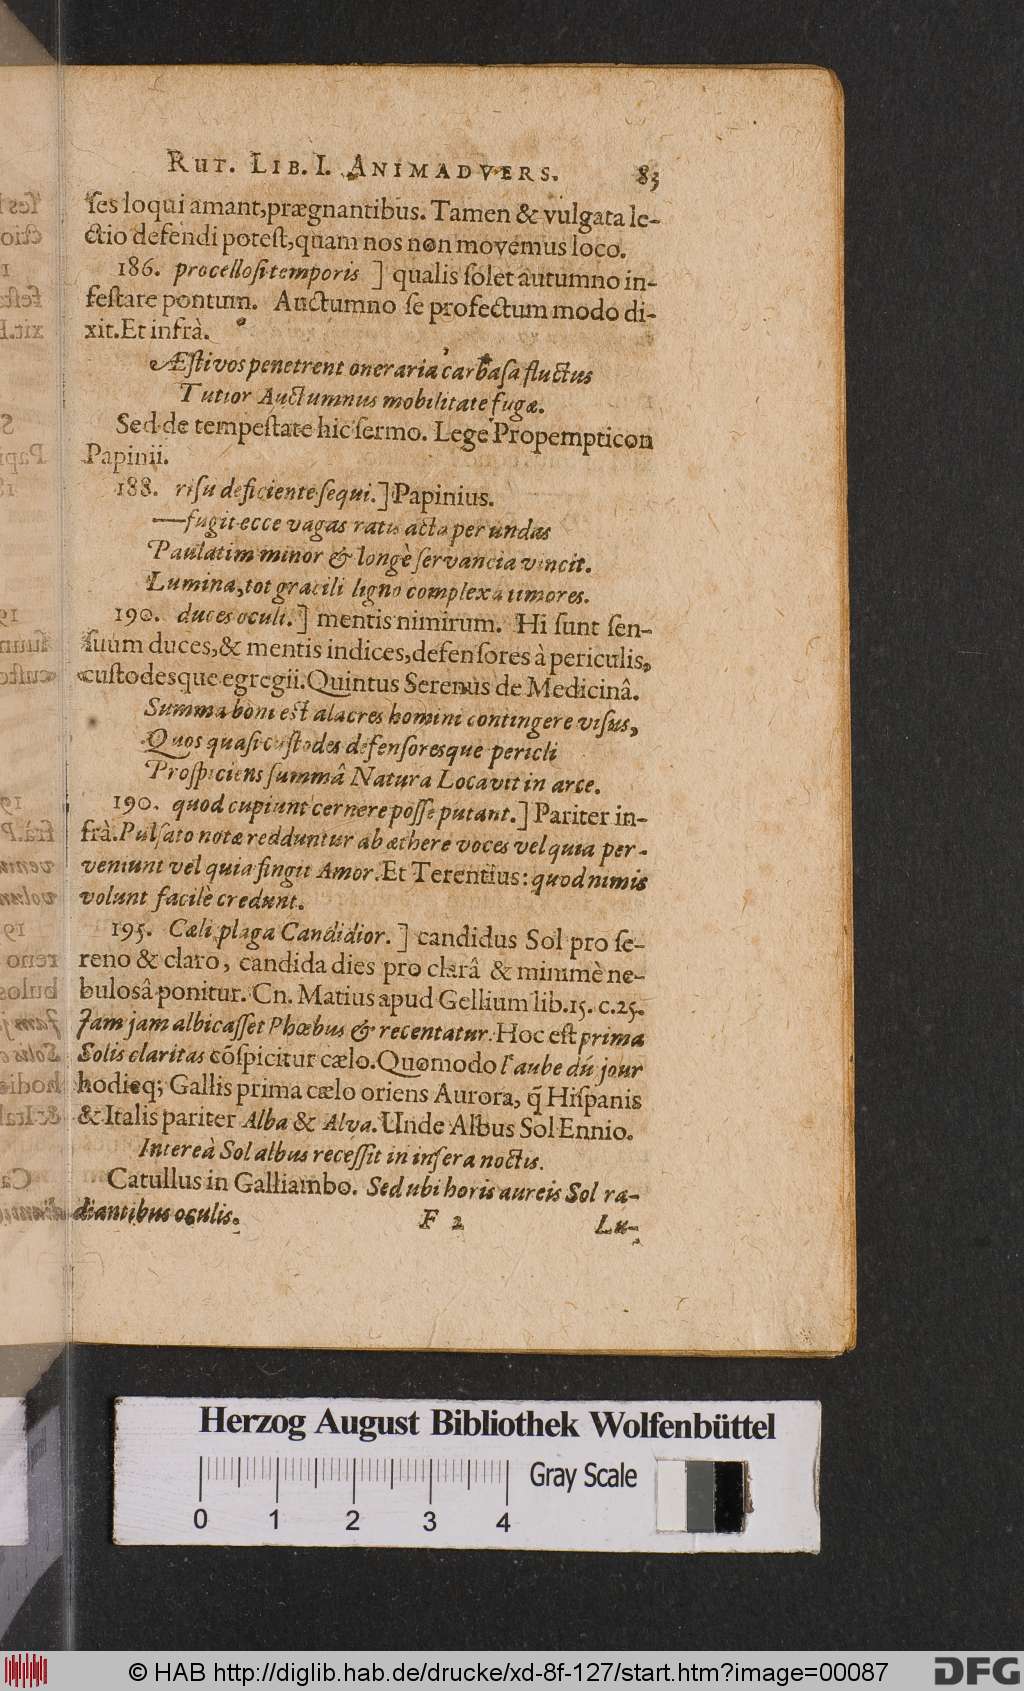 RUT. LIB. I. ANIMADVERS. 83
ſes loqui amant, prægnantibus. Tamen & vulgata le-
ctio defendi poteſt, quam nos non movemus loco.
186. procelloſi temporis ] qualis ſolet autumno in-
feſtare pontum. Auctumno ſe profectum modo di-
xit. Et infrà.
Æſtivos penetrent oneraria carbaſa fluctus
Tutior Auctumnus mobilitate fugæ.
Sed de tempeſtate hic ſermo. Lege Propempticon
Papinii.
188. riſu deficiente ſequi. ] Papinius.
—fugit ecce vagas ratis acta per undas
Paulatim minor & longè ſervantia vincit.
Lumina, tot gracili ligno complexa timores.
190. duces oculi. ] mentis nimirum. Hi ſunt ſen-
ſuum duces, & mentis indices, defenſores à periculis,
cuſtodesque egregii. Quintus Serenus de Medicinâ.
Summa boni est alacres homini contingere viſus,
Quos quaſi cuſtodes defenſoresque pericli
Proſpiciens ſummâ Natura Locavit in arce.
190. quod cupiunt cernere poſſe putant. ] Pariter in-
frà. Pulſato notæ redduntur ab æthere voces vel quia per-
veniunt vel quia fingit Amor. Et Terentius: quod nimis
volunt facilè credunt.
195. Cæli plaga Candidior. ] candidus Sol pro ſe-
reno & claro, candida dies pro clarâ & minimè ne-
bulosâ ponitur. Cn. Matius apud Gellium lib. 15. c. 25.
Jam jam albicaſſet Phœbus & recentatur. Hoc eſt prima
Solis claritas cõſpicitur cælo. Quomodo l'aube dú jour
hodieq; Gallis prima cælo oriens Aurora, q̃ Hiſpanis
& Italis pariter Alba & Alva. Unde Albus Sol Ennio.
Intereà Sol albus receſſit in infera noctis.
Catullus in Galliambo. Sed ubi horis aureis Sol ra-
diantibus oculis.
F 2 Lu-
Herzog August Bibliothek Wolfenbüttel
Gray Scale
0 1 2 3 4
© HAB http://diglib.hab.de/drucke/xd-8f-127/start.htm?image=00087 DFG